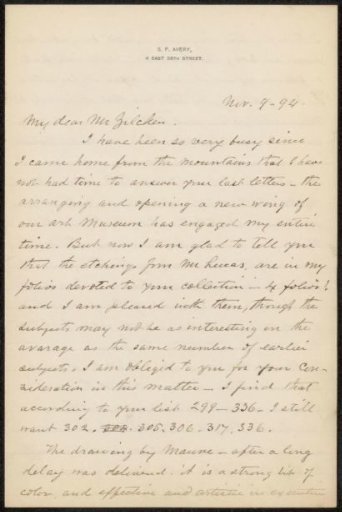 S. P. AVERY,
4 EAST 38TH STREET.
Nov. 9 - 94 -
My dear Mr Zilcken.
I have been so very busy since
I came home from the mountains that I have
not had time to answer your last letters - the
arranging and opening a new wing of
our art Museum has engaged my entire
time. But now I am glad to tell you
that the etchings from Mr Lucas, are in my
folios devoted to your collection - 4 folios!
and I am pleased with them, though the
subjects may not be as interesting on the
avarage as the same number of earlier
subjects. I am obliged to you for your Con-
sideration in this matter - I find that
according to your list 299 - 336 - I still
want 302. 305. 306 - 317. 336.
The drawing by Mauve - after a long
delay was delivered. it is a strong bit of
color, and effective and artistic in execution